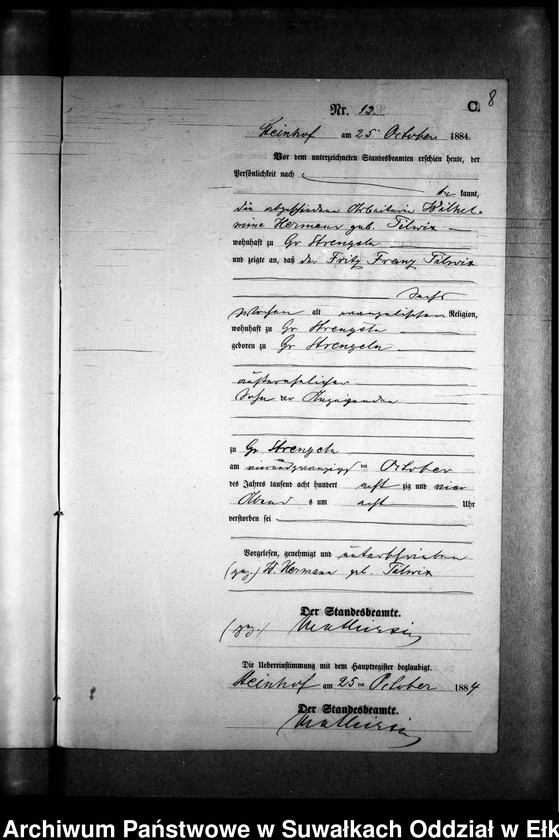 8
Nr. 12.
C.
Steinhof am 25 October 1884.
Vor dem unterzeichneten Standesbeamten erschien heute, der
Persönlichkeit nach
be kannt,
die abgeschiedene Arbeiterin Wilhel-
mine Hermann geb. Tilwix
wohnhaft zu Gr Strengeln
und zeigte an, daß der Fritz Franz Tilwix
sechs
Wochen alt evangelischer Religion,
wohnhaft zu Gr Strengeln
geboren zu Gr Strengeln
außerehelicher
Sohn der Anzeigenden
zu Gr Strengeln
am vierundzwanzigsten October
des Jahres tausend acht hundert acht zig und vier
Abend s um acht Uhr
verstorben sei
Vorgelesen, genehmigt und unterschrieben
(gez.) W. Hermann geb. Tilwix
Der Standesbeamte.
(gez)
Die Uebereinstimmung mit dem Hauptregister beglaubigt.
Steinhof am 25 ten October 1884
Der Standesbeamte.
Archiwum Państwowe w Suwałkach Oddział w Ełk